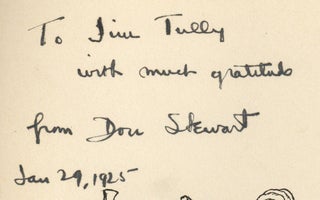 To Jim Tully
with much gratitude
from Don Stewart
Jan 29, 1925